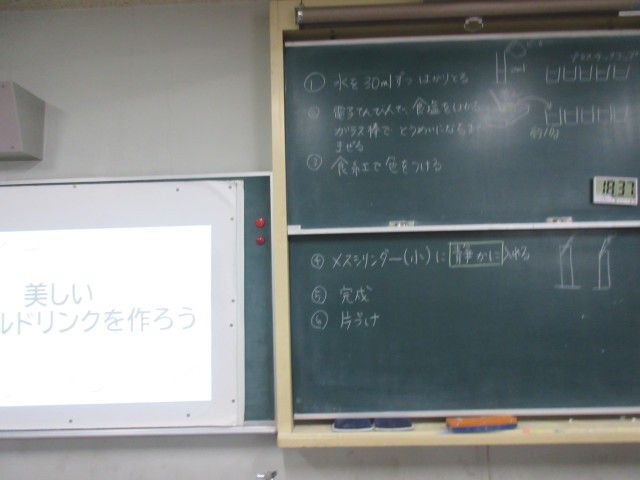 美しい
ルドリンクを作ろう
① 水を30mlずつはかりとる
② 電子てんびんで、食塩をはかる
ガラス棒でとうめいになるまで
まぜる
③ 食紅で色をつける
18:37
④ メスシリンダー(小)に静かに入れる
⑤ 完成
⑥ 片づけ